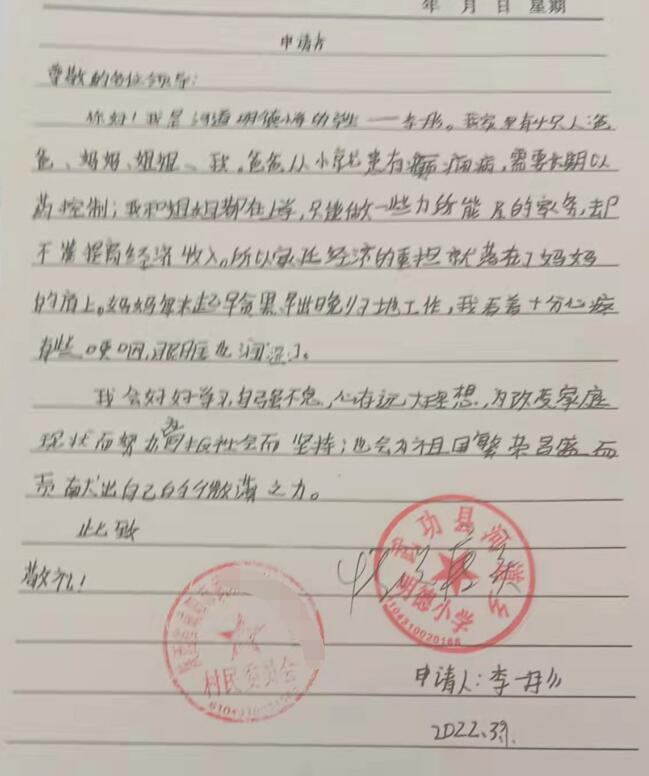 年 月 日 星期
申请书
尊敬的各位领导：
你好！我是河道明德小学的学生——李彤。我家里有4口人爸
爸、妈妈、姐姐、我。爸爸从小就患有癫痫病，需要长期以
药控制；我和姐姐都在上学，只能做一些力所能及的家务，却
不能提高经济收入。所以家庭经济的重担就落在了妈妈
的肩上。妈妈每天起早贪黑早出晚归地工作，我看着十分心疼
有些哽咽，眼眶也湿润了。
我会好好学习，自强不息，心存远大理想，为改变家庭
现状而努力 而坚持；也会为祖国繁荣昌盛而
贡献出自己的微薄之力。
此致
敬礼！
武功县河道乡
明德小学
村民委员会
申请人：李
2022.3.9.